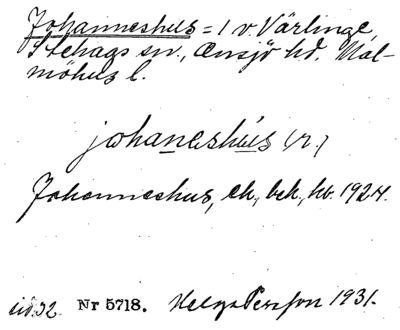 Johanneshus = 1 v. Värlinge,
Stehags sn., Onsjö hd. Mal-
möhus l.
johaneshús (r.)
Johanneshus, ek., bek., hv. 1924.
Nr 5718. Helge Persson 1931.